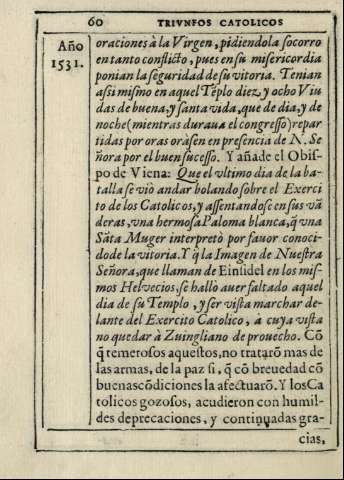 60 TRIVNFOS CATOLICOS
Año
1531.
oraciones à la Virgen, pidiendola socorro
en tanto conflicto, pues en su misericordia
ponian la seguridad de su vitoria. Tenian
assi mismo en aquel Tẽplo diez, y ocho Viu
das de buena, y santa vida, que de dia, y de
noche (mientras duraua el congresso) repar
tidas por oras orasen en presencia de N. Se
ñora por el buen sucesso. Y añade el Obis-
po de Viena: Que el vltimo dia de la ba-
talla se viò andar bolando sobre el Exerci
to de los Catolicos, y assentandose en sus vã
deras, vna hermosa Paloma blanca, q̃ vna
Sãta Muger interpretò por fauor conoci-
do de la vitoria. Y q̃ la Imagen de Nuestra
Señora, que llaman de Einsidel en los mis-
mos Helvecios, se hallò auer faltado aquel
dia de su Templo, y ser vista marchar de-
lante del Exercito Catolico, à cuya vista
no quedar à Zuingliano de prouecho. Cõ
q̃ temerosos aquestos, no tratarõ mas de
las armas, de la paz si, q̃ cõ breuedad cõ
buenas cõdiciones la afectuarõ. Y los Ca
tolicos gozosos, acudieron con humil-
des deprecaciones, y continuadas gra-
cias,